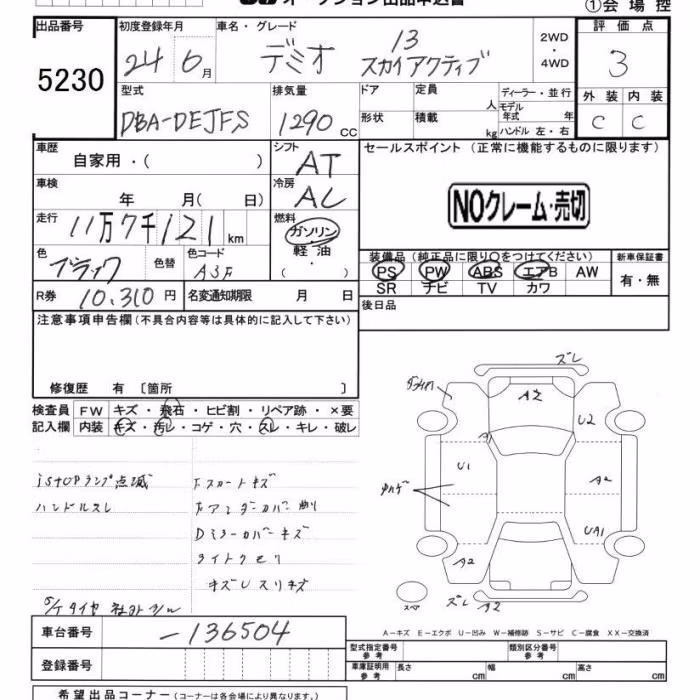 オークション出品申込書
①会場控
出品番号
5230
初度登録年月
24 6月
車名・グレード
デミオ 13 スカイアクティブ
2WD・4WD
評価点
3
型式
DBA-DEJFS
排気量
1290 CC
ドア
定員 人
形状
積載 kg
ディーラー・並行
モデル年式 年
ハンドル 左・右
外装 内装
C C
車歴
自家用・( )
シフト
AT
セールスポイント (正常に機能するものに限ります)
NOクレーム・売切
車検
年 月( 日)
冷房
AC
走行
11万7千121 km
燃料
ガソリン
軽油・
( )
色
ブラック
色替
色コード
A3F
装備品 (純正品に限り○をつけてください)
PS PW ABS エアB AW
SR ナビ TV カワ
新車保証書
有・無
R券 10,310円
名変通知期限 月 日
後日品
注意事項申告欄(不具合内容等は具体的に記入して下さい)
修復歴 有 〔箇所 〕
検査員記入欄
FW キズ・飛石・ヒビ割・リペア跡・×要
内装 キズ・汚レ・コゲ・穴・スレ・キレ・破レ
iSTOPランプ点滅
ハンドルスレ
Fスカートキズ
Dミラーカバーキズ
ライトクモリ
キズレスリキズ
ズレ
A2
U2
A1
U1
A2
UA1
A2
スペア
ズレ A2
A-キズ E-エクボ U-凹み W-補修跡 S-サビ C-腐食 XX-交換済
車台番号
-136504
登録番号
型式指定番号 参考
類別区分番号 参考
車庫証明用 参考
長さ cm 幅 cm 高さ cm
希望出品コーナー (コーナーは各会場により異なります。)